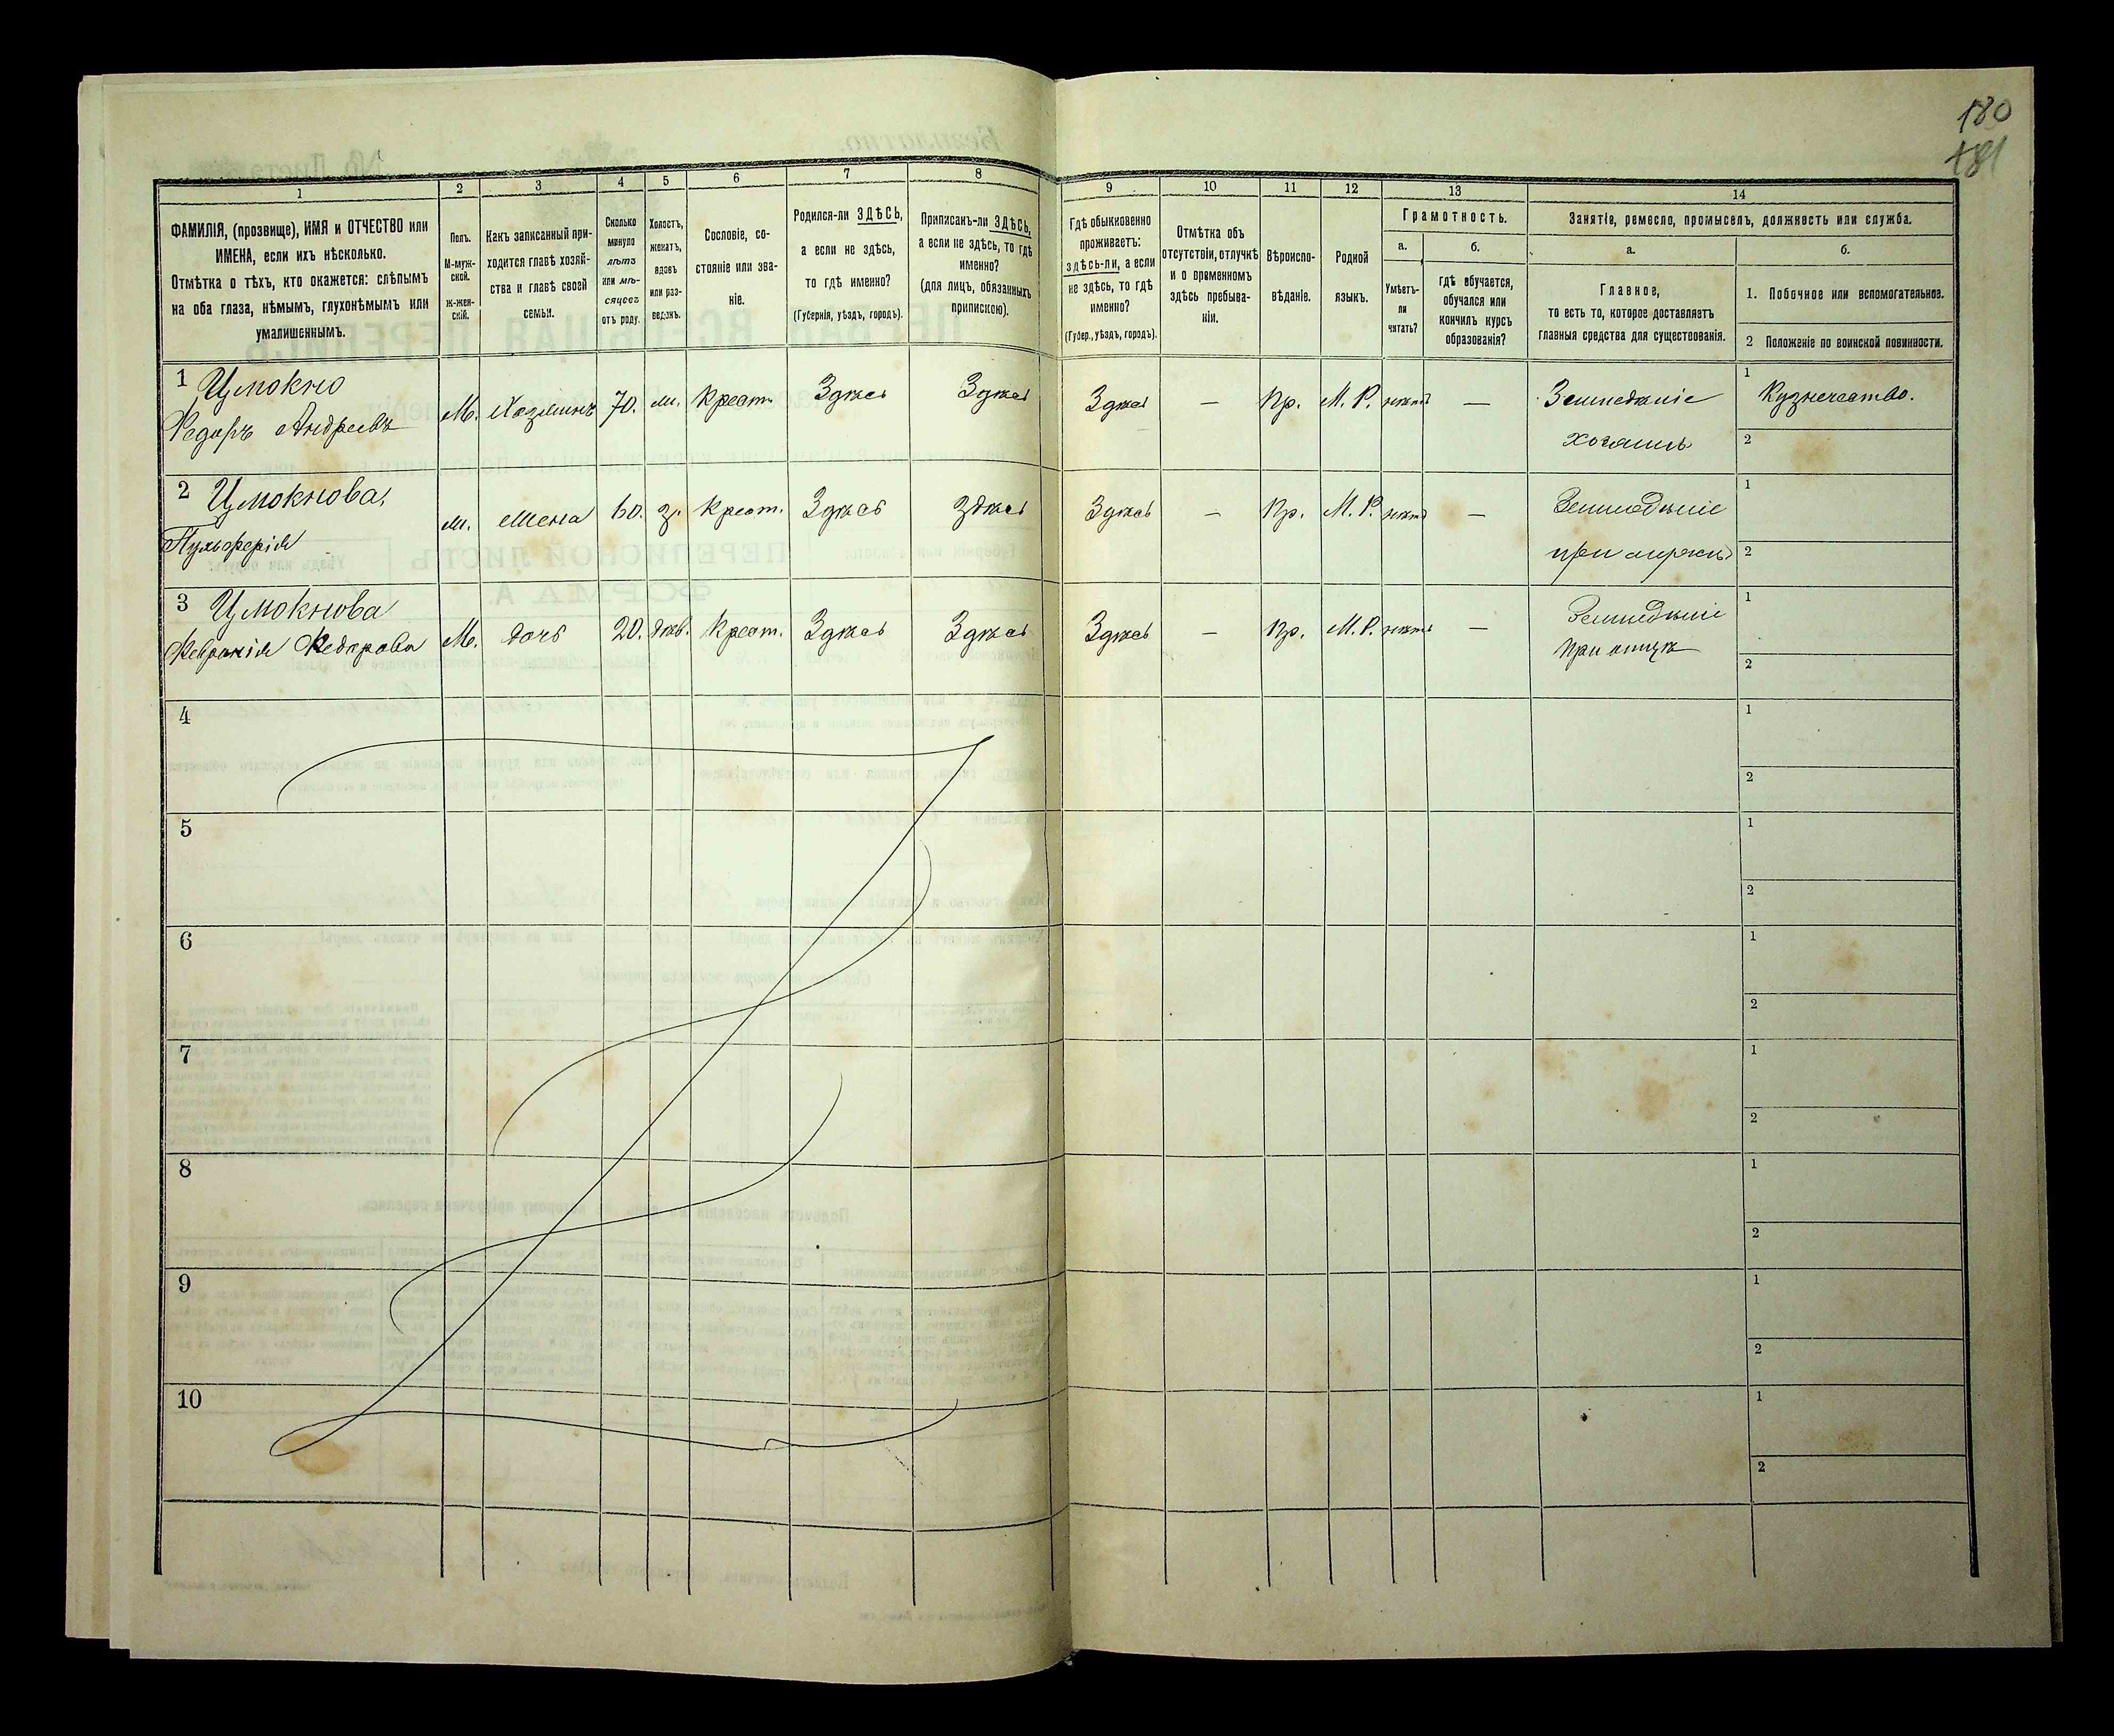 180
181
1
2
3
4
5
6
7
8
9
10
11
12
13
14
ФАМИЛІЯ, (прозвище), ИМЯ и ОТЧЕСТВО или
ИМЕНА, если ихъ нѣсколько.
Отмѣтка о тѣхъ, кто окажется: слѣпымъ
на оба глаза, нѣмымъ, глухонѣмымъ или
умалишеннымъ.
Полъ.
М-муж-
ской.
ж-жен-
скій.
Какъ записанный при-
ходится главѣ хозяй-
ства и главѣ своей
семьи.
Сколько
минуло
лѣтъ
или мѣ-
сяцевъ
отъ роду.
Холостъ,
женатъ,
вдовъ
или раз-
веденъ.
Сословіе, со-
стояніе или зва-
ніе.
Родился-ли ЗДѢСЬ,
а если не здѣсь,
то гдѣ именно?
(Губернія, уѣздъ, городъ).
Приписанъ-ли ЗДѢСЬ,
а если не здѣсь, то гдѣ
именно?
(для лицъ, обязанныхъ
припискою).
Гдѣ обыкновенно
проживаетъ:
здѣсь-ли, а если
не здѣсь, то гдѣ
именно?
(Губер., уѣздъ, городъ).
Отмѣтка объ
отсутствіи, отлучкѣ
и о временномъ
здѣсь пребыва-
ніи.
Вѣроиспо-
вѣданіе.
Родной
языкъ.
Грамотность.
а.
б.
Умѣетъ-
ли
читать?
Гдѣ обучается,
обучался или
кончилъ курсъ
образованія?
Занятіе, ремесло, промыселъ, должность или служба.
а.
б.
Главное,
то есть то, которое доставляетъ
главныя средства для существованія.
1. Побочное или вспомогательное.
2 Положеніе по воинской повинности.
1 Цмокно
Федоръ Андреевъ
М. Хозяинъ 70. ж. Крест. Здѣсь Здѣсь Здѣсь — Пр. М. Р. нѣтъ — Земледѣліе
1 Кузнечество.
2
2 Цмокнова,
Пульферія
ж. Жена 60. з. Крест. Здѣсь Здѣсь Здѣсь — Пр. М. Р. нѣтъ — Земледѣліе
при мужѣ
1
2
3 Цмокнова
Февронія Федорова
Ж. дочь 20. дѣв. Крест. Здѣсь Здѣсь Здѣсь — Пр. М. Р. нѣтъ — Земледѣліе
при отцѣ
1
2
4
1
2
5
1
2
6
1
2
7
1
2
8
1
2
9
1
2
10
1
2